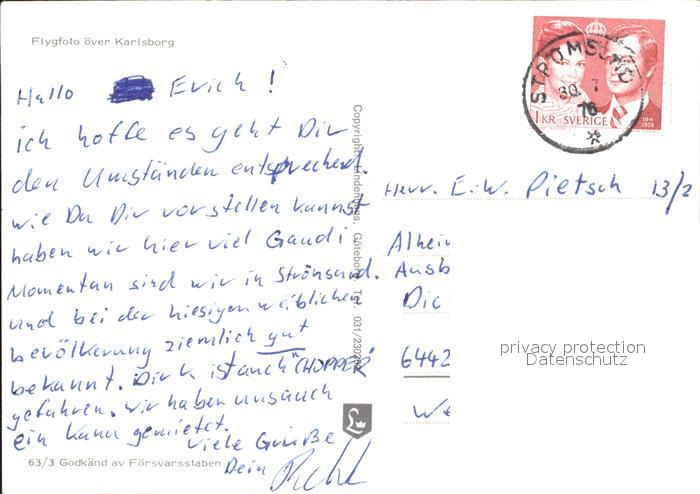 Flygfoto över Karlsborg
Hallo Erich!
ich hoffe es geht Dir
den Umständen entsprechend.
wie Du Dir vorstellen kannst
haben wir hier viel Gaudi.
Momentan sind wir in Strönsund.
und bei der hiesigen weiblichen
bevölkerung ziemlich gut
bekannt. Dirk ist auch "CHOPPER"
gefahren. wir haben uns auch
ein Kanu gemietet.
Viele Grüße
Dein
63/3 Godkänd av Försvarsstaben
Göteborg. Tel. 031/
STRÖMSUND
30. 7
76
1 KR SVERIGE
19 6
1976
Herr. E.W. Pietsch 13/2
Alhein
Ausb
Die
6442
privacy protection
Datenschutz